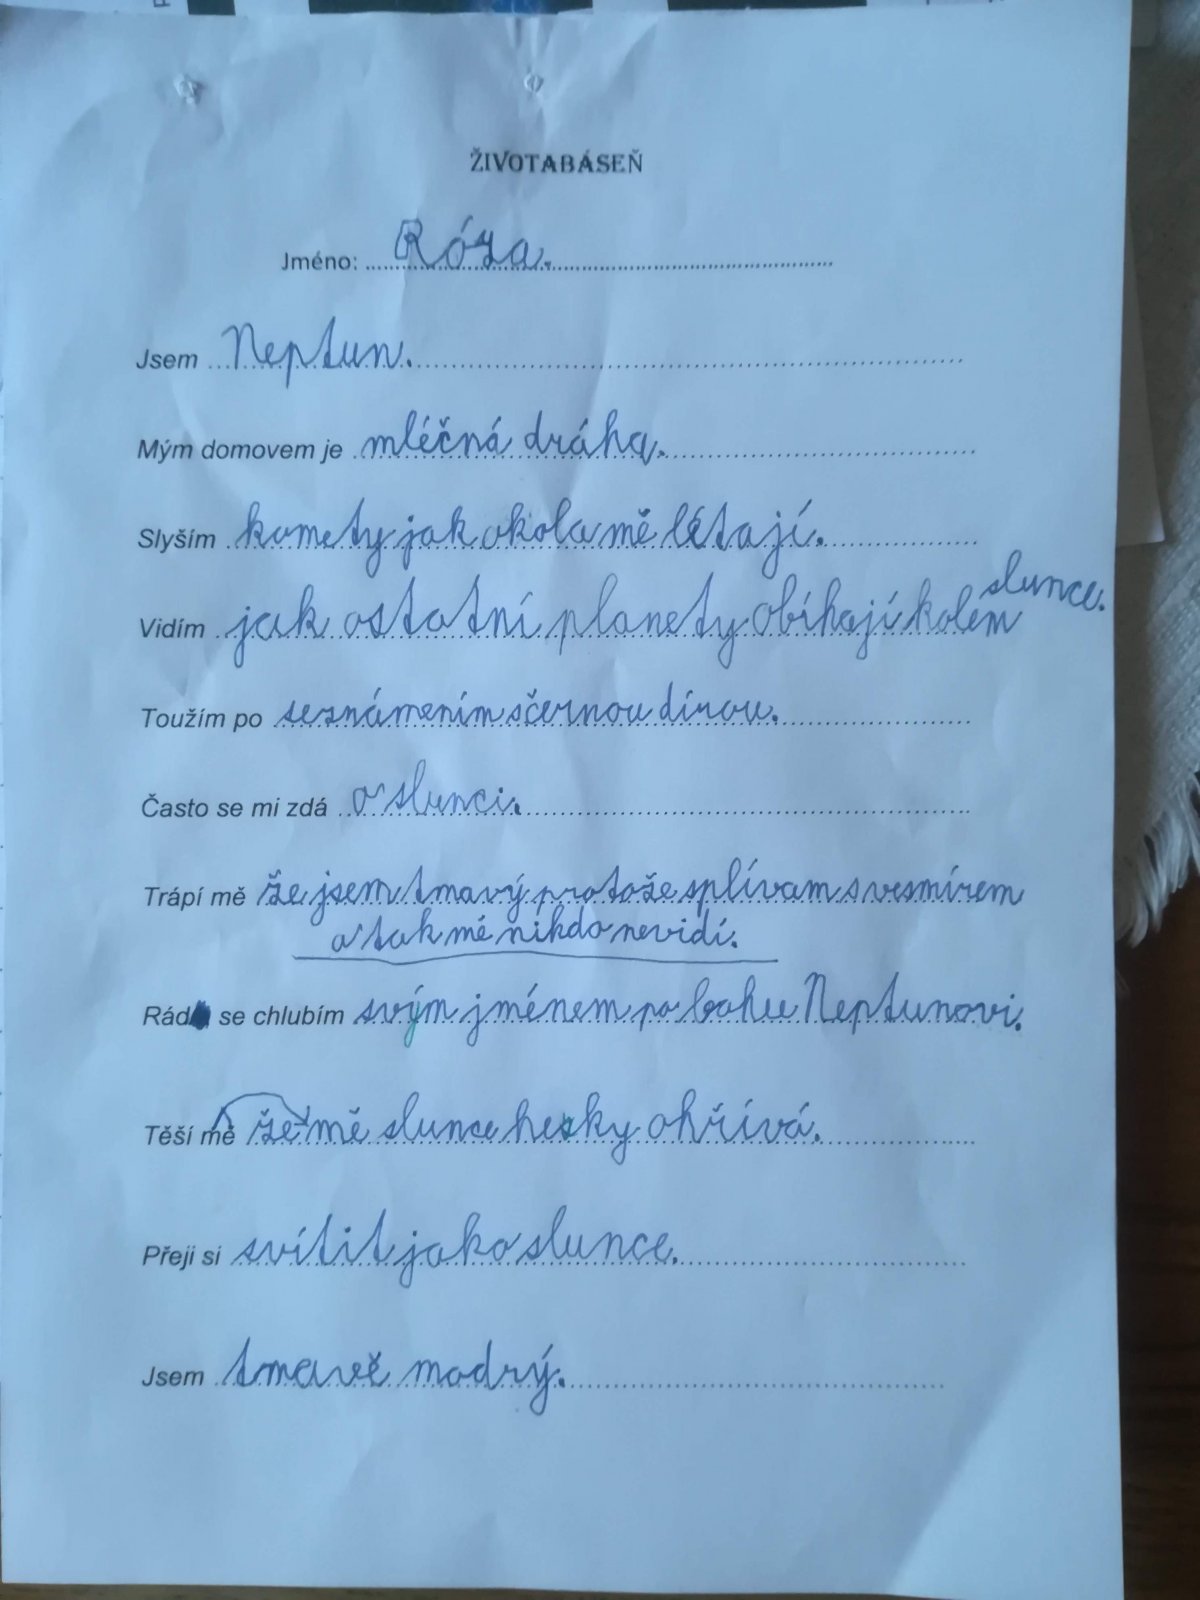 ŽIVOTABÁSEŇ
Jméno: Róza.
Jsem Neptun.
Mým domovem je mléčná dráha.
Slyším komety jak okola mě létají.
Vidím jak ostatní planety obíhají kolem slunce.
Toužím po seznámením sčernou dírou.
Často se mi zdá o slunci.
Trápí mě že jsem tmavý protože splívam s vesmírem
a tak mé nikdo nevidí.
Rád se chlubím svým jménem po bohu Neptunovi.
Těší mě že mě slunce hesky ohřívá.
Přeji si svítit jako slunce.
Jsem tmavě modrý.